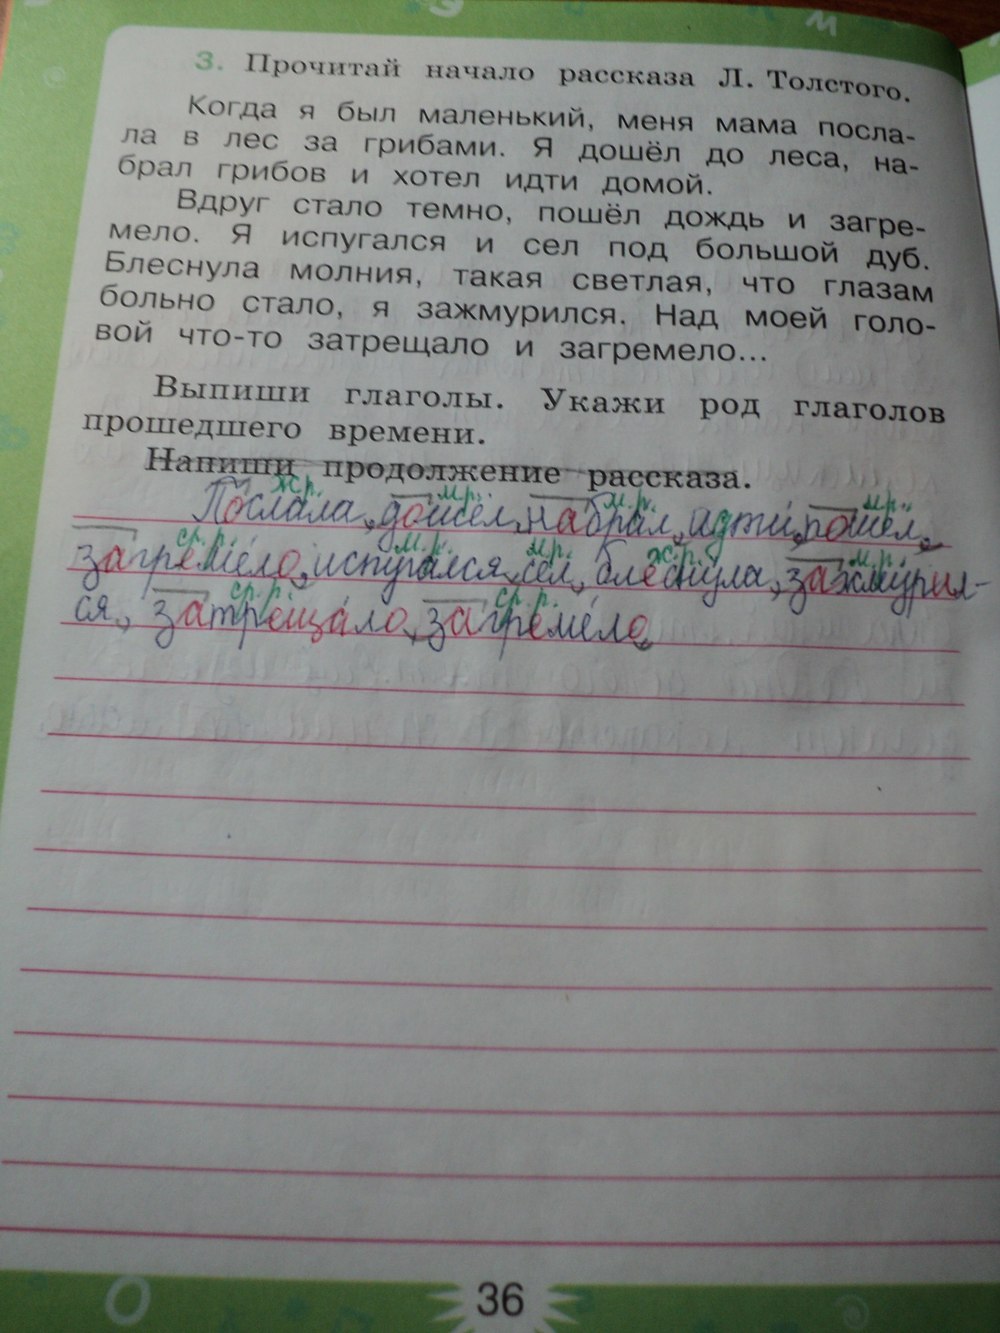 3. Прочитай начало рассказа Л. Толстого.
Когда я был маленький, меня мама посла-
ла в лес за грибами. Я дошёл до леса, на-
брал грибов и хотел идти домой.
Вдруг стало темно, пошёл дождь и загре-
мело. Я испугался и сел под большой дуб.
Блеснула молния, такая светлая, что глазам
больно стало, я зажмурился. Над моей голо-
вой что-то затрещало и загремело...
Выпиши глаголы. Укажи род глаголов
прошедшего времени.
Напиши продолжение рассказа.
ж.р. м.р. м.р. м.р.
Послала, дошёл, набрал, идти, пошёл,
ср.р. м.р. м.р. ж.р. м.р.
загремело, испугался, сел, блеснула, зажмурил-
ср.р. ср.р.
ся, затрещало, загремело.
36